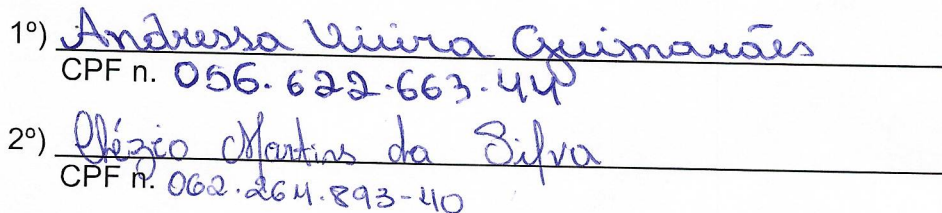 1º) Andressa Vieira Guimarães
CPF n. 056.622.663-44
2º) Clézio Martins da Silva
CPF n. 062.264.893-40